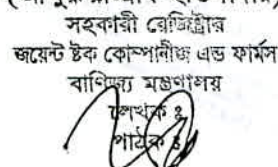 সহকারী রেজিষ্ট্রার
জয়েন্ট ষ্টক কোম্পানীজ এন্ড ফার্মস
বাণিজ্য মন্ত্রণালয়
লেখক ঃ
পাঠক ঃ